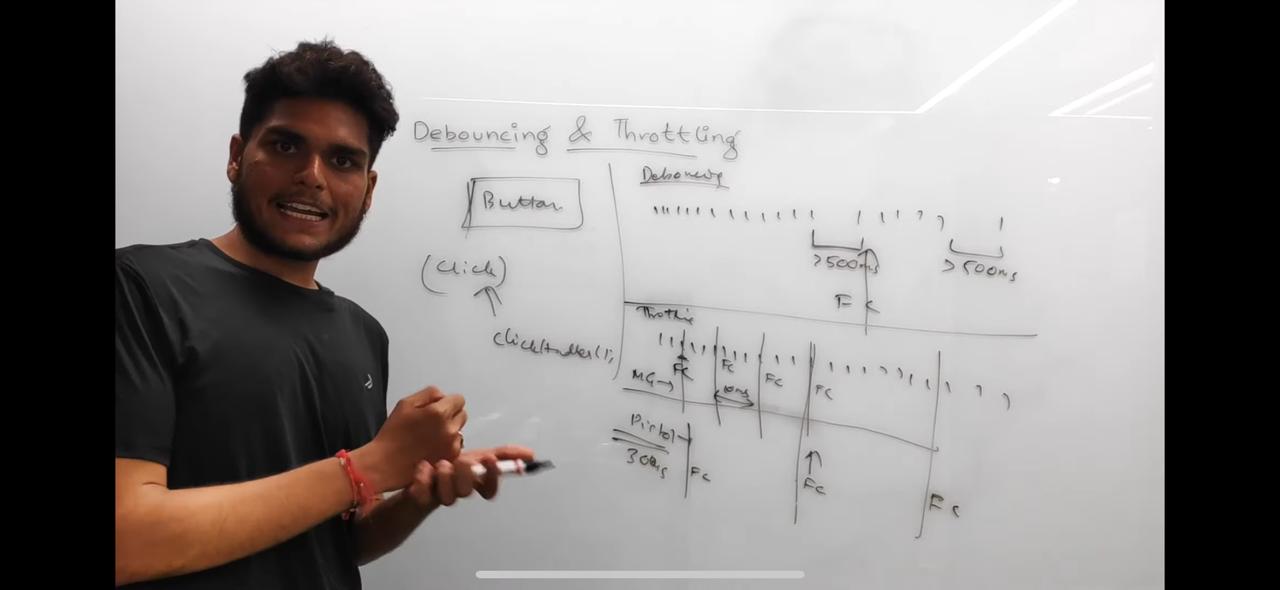 Debouncing & Throttling
Button
(click)
clickHandler();
Debouncing
>500ms
>500ms
FC
FC
FC
FC
FC
MG→
10ms
Pistol
300ms
FC
FC
FC